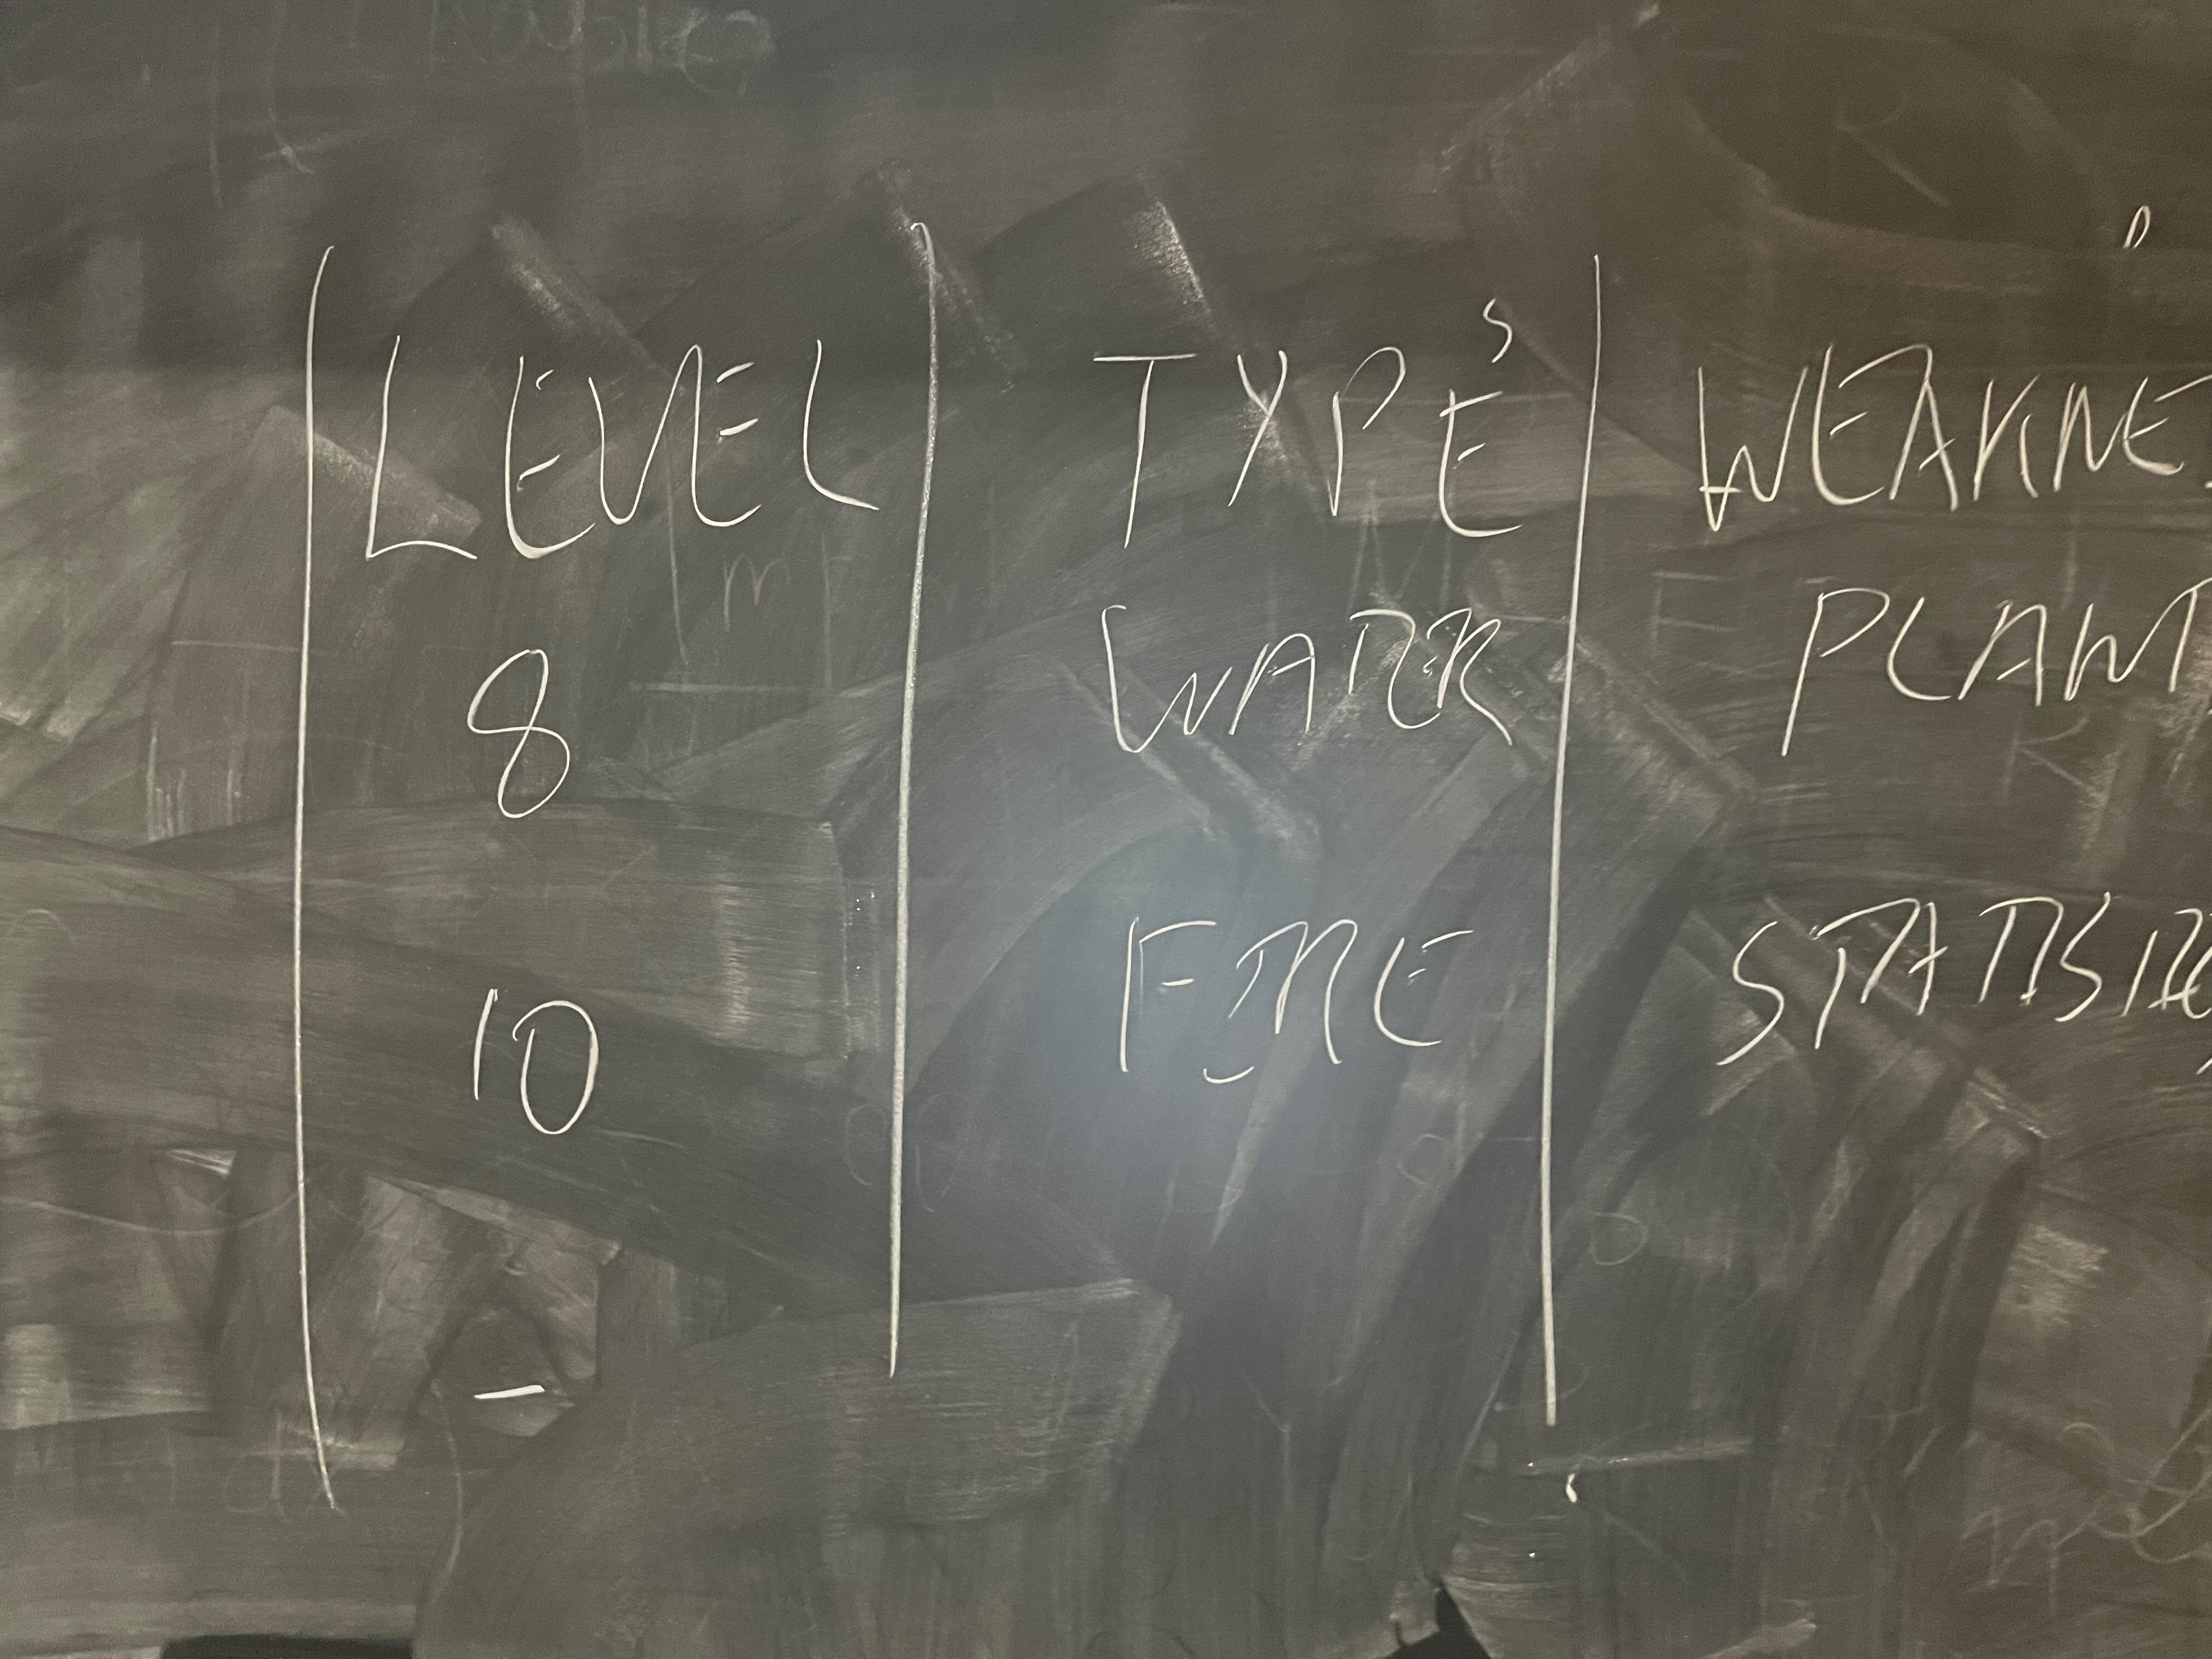 LEVEL TYPES WEAKNE
8 WATER PLANT
10 FIRE STATISTIC
-